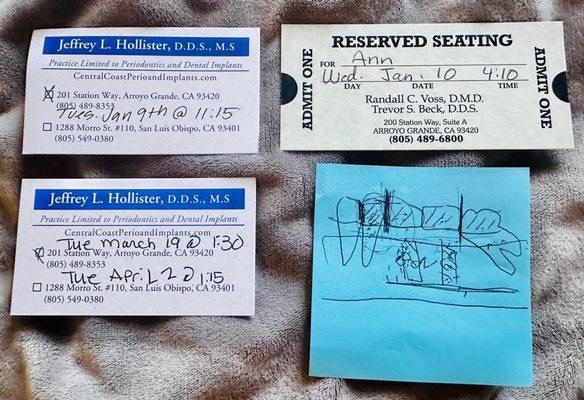 Jeffrey L. Hollister, D.D.S., M.S
Practice Limited to Periodontics and Dental Implants
CentralCoastPerioandImplants.com
201 Station Way, Arroyo Grande, CA 93420
(805) 489-8353
Tues. Jan 9th @ 11:15
1288 Morro St. #110, San Luis Obispo, CA 93401
(805) 549-0380
RESERVED SEATING
ADMIT ONE
FOR Ann
Wed. Jan. 10 4:10
DAY DATE TIME
Randall C. Voss, D.M.D.
Trevor S. Beck, D.D.S.
200 Station Way, Suite A
ARROYO GRANDE, CA 93420
(805) 489-6800
ADMIT ONE
Jeffrey L. Hollister, D.D.S., M.S
Practice Limited to Periodontics and Dental Implants
CentralCoastPerioandImplants.com
Tue march 19 @ 1:30
201 Station Way, Arroyo Grande, CA 93420
(805) 489-8353
Tue April 2 @ 1:15
1288 Morro St. #110, San Luis Obispo, CA 93401
(805) 549-0380